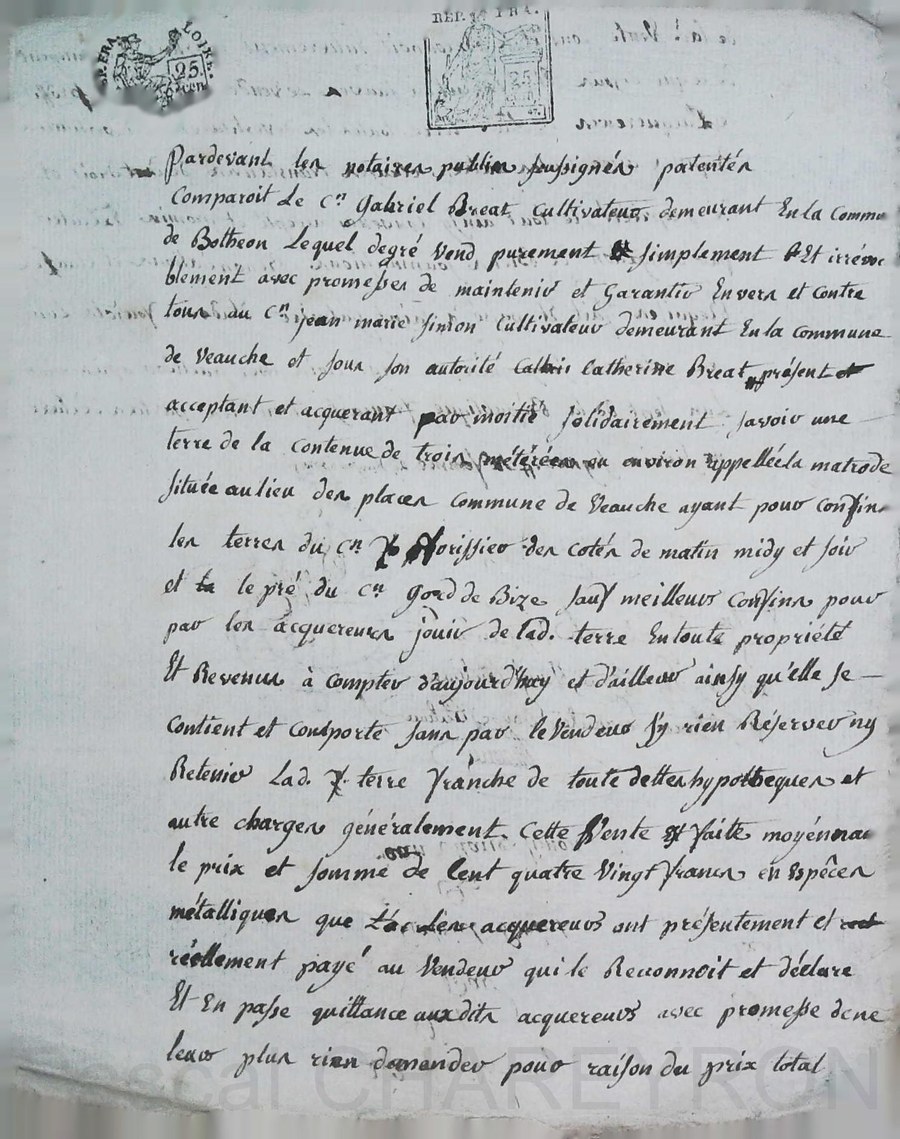 REP. FRA. LOIRE.
25. CEN.
REP. FRA.
25
Pardevant les notaires publics soussignés patentés
Comparoit Le Cen Gabriel Breat Cultivateur demeurant En la Commu
de Botheon Lequel degré vend purement & simplement & Et irrévoc
blement avec promesses de maintenir et Garantir Envers et Contre
tous au Cen jean marie simon Cultivateur demeurant En la Commune
de Veauche et sous son autorité Catherine Breat présent et
acceptant et acquerant par moitié solidairement savoir une
terre de la contenue de trois métérées ou environ appellée la matrode
située au lieu des places Commune de Veauche ayant pour Confins
les terres du Cen des cotés de matin midy et soir
et la le pré du Cen de Bize sauf meilleurs Confins pour
par les acquereurs jouir de lad. terre En toute propriété
Et Revenus à compter d'aujourd'huy et d'ailleur ainsy qu'elle se
Contient et Comporte sans par le Vendeur s'y rien Réserver ny
Retenir Lad. terre franche de toute dettes hypotheques et
autre charges généralement. Cette Vente est faite moyénnan
le prix et somme de Cent quatre Vingt francs en Espêces
métalliques que les acquereurs ont présentement et
réellement payé au Vendeur qui le Reconnoit et déclare
Et En passe quittance aux dits acquereurs avec promesse de ne
leur plus rien demander pour raison du prix total
cal CHAREYRON